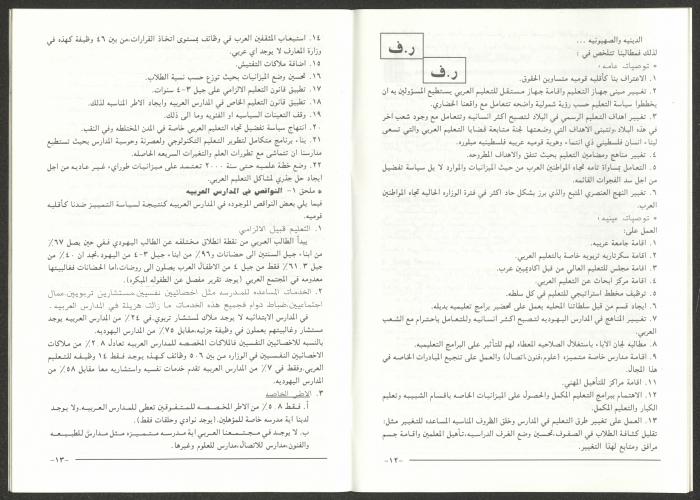 الدينيه والصهيونيه ...
لذلك فمطالبنا تتلخص في :
ر.ف
ر.ف
* توصيات عامه:
١. الاعتراف بنا كأقليه قوميه متساوين الحقوق.
٢. تغيير مبنى جهاز التعليم واقامة جهاز مستقل للتعليم العربي يستطيع المسؤولين به ان
يخططوا سياسة التعليم حسب رؤية شمولية واضحه تتعامل مع واقعنا الحضاري.
٣. تغيير اهداف التعليم الرسمي في البلاد لتصبح اكثر انسانيه وتتعامل مع وجود شعب اخر
في هذه البلاد وتتبنى الاهداف التي وضعتها لجنة متابعة قضايا التعليم العربي والتي تسعى
لبناء انسان فلسطيني ذي انتماء وهوية قوميه عربيه فلسطينيه مبلوره.
٤. تغيير مناهج ومضامين التعليم بحيث تتفق والاهداف المطروحه.
٥. التعامل بمساواة تامه تجاه المواطنين العرب من حيث الميزانيات والموارد لا بل سياسة تفضيل
من اجل سد الفجوات القائمه.
٦. تغيير النهج العنصري المتبع والذي برز بشكل حاد اكثر في فترة الوزاره الحاليه تجاه المواطنين
العرب.
* توصيات عينيه:
العمل على:
١. اقامة جامعة عربيه.
٢. اقامة سكرتاريه تربويه خاصة بالتعليم العربي.
٣. اقامة مجلس للتعليم العالي من قبل اكاديميين عرب.
٤. اقامة مركز ابحاث عن التعليم العربي.
٥. توظيف مخطط استراتيجي للتعليم في كل سلطه.
٦. ايجاد قسم من قبل سلطاتنا المحليه يعمل على تحضير برامج تعليميه بديله.
٧. تغيير المناهج في المدارس اليهوديه لتصبح اكثر انسانيه وللتعامل باحترام مع الشعب
العربي.
٨. مطالبه لجان الاباء باستغلال الصلاحيه المعطاه لهم للتأثير على البرامج التعليميه.
٩. اقامة مدارس خاصة متميزه (علوم،فنون،اتصال) والعمل على تنجيع المبادرات الخاصه في
هذا المجال.
١١. اقامة مراكز للتأهيل المهني.
١٢. الاهتمام ببرامج التعليم المكمل والحصول على الميزانيات الخاصه باقسام الشبيبه وتعليم
الكبار والتعليم المكمل.
١٣. العمل على تغيير طرق التعليم في المدارس وخلق الظروف المناسبه المساعده للتغيير مثل:
تقليل كثافة الطلاب في الصفوف،تحسين وضع الغرف الدراسيه،تأهيل المعلمين واقامة جسم
مرافق ومتابع لهذا التغيير.
-١٢-
١٤. استيعاب المثقفين العرب في وظائف بمستوى اتخاذ القرارات،من بين ٤٦ وظيفة كهذه في
وزارة المعارف لا يوجد اي عربي.
١٥. اضافة ملاكات التفتيش.
١٦. تحسين وضع الميزانيات بحيث توزع حسب نسبة الطلاب.
١٧. تطبيق قانون التعليم الالزامي على جيل ٣-٤ سنوات.
١٨. تطبيق قانون التعليم الخاص في المدارس العربيه وايجاد الاطر المناسبه لذلك.
١٩. وقف التعيينات السياسيه او الفئويه وما الى ذلك.
٢٠. انتهاج سياسة تفضيل تجاه التعليم العربي خاصة في المدن المختلطه وفي النقب.
٢١. بناء برنامج متكامل لتطوير التعليم التكنولوجي ولعصرنة وحوسبة المدارس بحيث تستطيع
مدارسنا ان تتماشى مع تطورات العلم والتغيرات السريعه الحاصله.
٢٢. وضع خطة علميه حتى سنة ٢٠٠٠ تعتمد على ميزانيات طوراىء غير عاديه من اجل
ايجاد حل جذري لمشاكل التعليم العربي.
* ملحق ١- النواقص في المدارس العربيه
فيما يلي بعض النواقص الموجوده في المدارس العربيه كنتيجة لسياسة التمييز ضدنا كأقليه
قوميه.
١. التعليم قبيل الالزامي
يبدأ الطالب العربي من نقطة انطلاق مختلفه عن الطالب اليهودي ففي حين يصل ٦٧٪
من ابناء جيل السنتين الى حضانات و٩٦٪ من ابناء جيل ٣-٤ من اليهود،نجد ان ٤٠٪ من
جيل ٣ و٦١٪ فقط من جيل ٤ من الاطفال العرب يصلون الى روضات،اما الحضانات ففالبيتها
معدومه في المجتمع العربي (يوجد تقرير مفصل عن الطفوله المبكره).
٢. الخدمات المساعده للمدرسه مثل اخصائيين نفسيين،مستشارين تربويين،عمال
اجتماعيين،ضباط دوام فجميع هذه الخدمات ما زالت هزيلة في المدارس العربيه .
في المدارس الابتدائيه لا يوجد ملاك لمستشار تربوي.في ٢٤٪ من المدارس العربيه يوجد
مستشار وغالبيتهم يعملون في وظيفة جزئيه،مقابل ٧٥٪ من المدارس اليهوديه.
بالنسبه للاخصائيين النفسيين فالملاكات المخصصه للمدارس العربيه تعادل ٢.٨٪ من ملاكات
الاخصائيين النفسيين في الوزاره من بين ٥٠٦ وظائف كهذه يوجد فقط ١٤ وظيفه للتعليم
العربي.وفقط في ٧٪ من المدارس العربيه تقدم خدمات نفسيه واستشاريه معا مقابل ٥٨٪ من
المدارس اليهوديه.
٣. الاطر الخاصه
أ. فقط ٥.٨٪ من الاطر المخصصه للمتفوقين تعطى للمدارس العربيه.ولا يوجد
لدينا اية مدرسه خاصة للموهوبين.(يوجد نوادي وحلقات فقط).
ب. لا يوجد في مجتمعنا العربي اية مدرسه متميزه مثل مدارس للطبيعه
والفنون،مدارس للاتصال،مدارس للعلوم وغيرها.
-١٣-